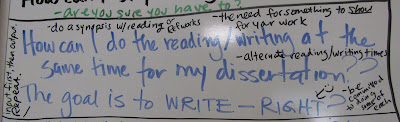 - are you sure you have to?
- do a synopsis w/reading or refworks
- the need for something to show for your work
How can I do the reading/writing at the same time for my dissertation?
- alternate reading/writing times
The goal is to WRITE - RIGHT?
- be committed to doing some of each
Input first, then output. Repeat.